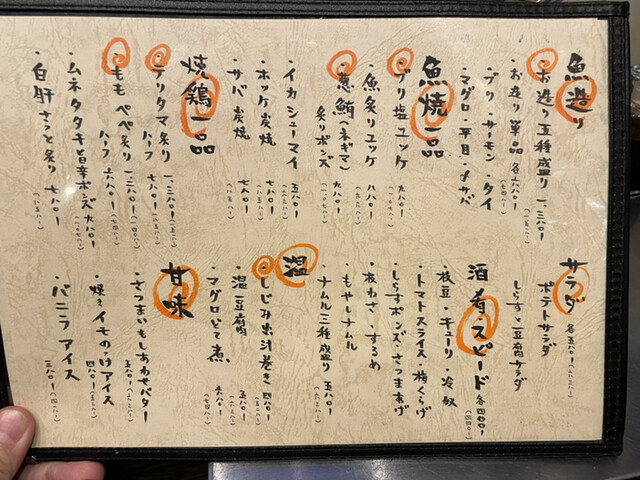 魚造り
・お造り五種盛り 一、三八〇ー
・お造り単品 各六八〇ー
・ブリ・サーモン・タイ
・マグロ・平目・〆サバ
魚焼一品
・ブリ塩ユッケ 九八〇ー
・魚炙りユッケ 八八〇ー
・葱鮪(ネギマ)
炙りポンズ 九八〇ー
・イカシューマイ 五八〇ー
・ホッケ炭焼 七八〇ー
・サバ炭焼 七八〇ー
焼鶏一品
・テリタマ炙り 一、三八〇ー
ハーフ 七八〇ー
・もも ペペ炙り 一、二八〇ー
ハーフ 六八〇ー
・ムネタタキと旨辛ポンズ 九八〇ー
・白肝さっと炙り 七八〇ー
サラダ 各五八〇ー
ポテトサラダ
しらすと豆腐サラダ
酒肴・スピード 各四〇〇ー
・枝豆・キューリ・冷奴
・トマトスライス・梅くらげ
・しらすポンズ・さつまあげ
・板わさ・するめ
・もやしナムル
・ナムル三種盛り 五八〇ー
温
・しじみ出汁巻き 四八〇ー
・温豆腐 五八〇ー
・マグロどて煮 六八〇ー
甘味
・さつまいもしあわせバター 五八〇ー
・焼きイモのっけアイス 四八〇ー
・バニラアイス 三八〇ー